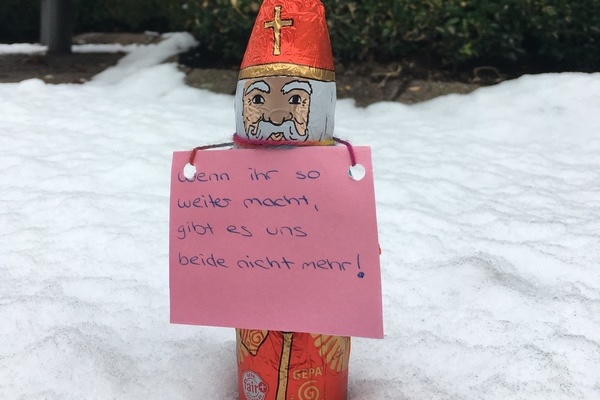 wenn ihr so
weiter macht,
gibt es uns
beide nicht mehr!
GEPA
fair+